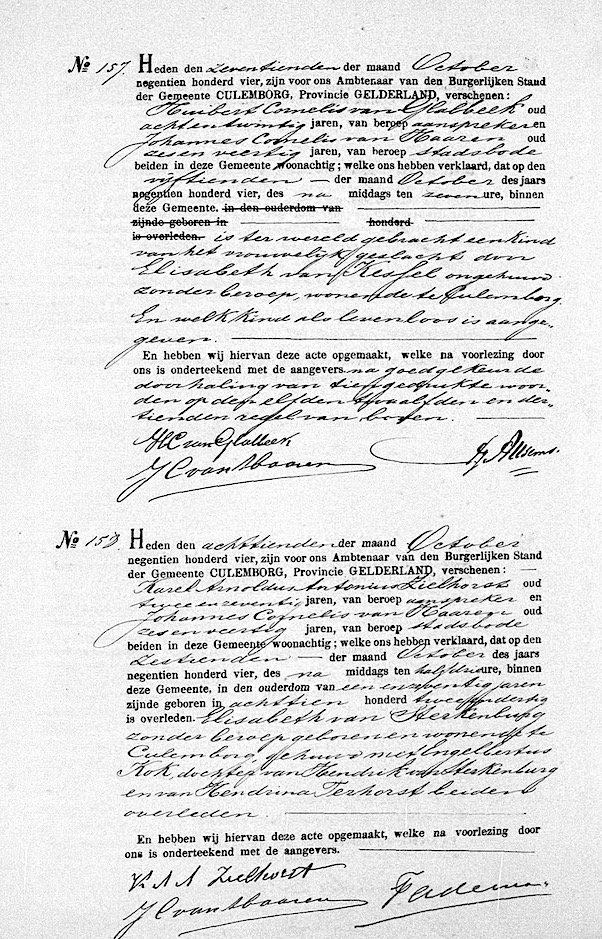 No 157. Heden den zeventienden der maand October
negentien honderd vier, zijn voor ons Ambtenaar van den Burgerlijken Stand
der Gemeente CULEMBORG, Provincie GELDERLAND, verschenen:
Huibert Cornelis van Glabbeek oud
achtentwintig jaren, van beroep aanspreker en
Johannes Cornelis van Haaren oud
zes en veertig jaren, van beroep stadsbode
beiden in deze Gemeente woonachtig; welke ons hebben verklaard, dat op den
vijftienden der maand October des jaars
negentien honderd vier, des na middags ten zeven ure, binnen
deze Gemeente. in den ouderdom van
zijnde geboren in honderd
is overleden. is ter wereld gebracht een kind
van het vrouwelijk geslacht door
Elisabeth van Kessel ongehuwd
zonder beroep, wonende te Culemborg.
En welk kind als levenloos is aange-
geven.
En hebben wij hiervan deze acte opgemaakt, welke na voorlezing door
ons is onderteekend met de aangevers. na goedgekeurde
doorhaling van tien gedrukte woor-
den op den elfden twaalfden en der-
tienden regel van boven.
HC van Glabbeek
J C van Haaren
No 158. Heden den achttienden der maand October
negentien honderd vier, zijn voor ons Ambtenaar van den Burgerlijken Stand
der Gemeente CULEMBORG, Provincie GELDERLAND, verschenen:
Karel Arnoldus Antonius Zielhorst oud
twee en zeventig jaren, van beroep aanspreker en
Johannes Cornelis van Haaren oud
zes en veertig jaren, van beroep stadsbode
beiden in deze Gemeente woonachtig; welke ons hebben verklaard, dat op den
zestienden der maand October des jaars
negentien honderd vier, des na middags ten half drie ure, binnen
deze Gemeente, in den ouderdom van een en zeventig jaren
zijnde geboren in achttien honderd twee en dertig
is overleden. Elisabeth van Sterkenburg
zonder beroep geboren en wonende te
Culemborg gehuwd met Engelbertus
Kok, dochter van Hendrik van Sterkenburg
en van Hendrina Terhorst beiden
overleden.
En hebben wij hiervan deze acte opgemaakt, welke na voorlezing door
ons is onderteekend met de aangevers.
K A A Zielhorst
J C van Haaren